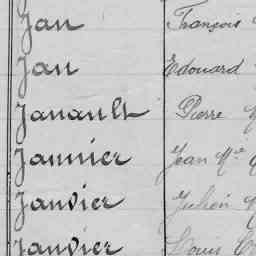 Jan François
Jan Edouard
Janault Pierre
Jannier Jean Mie
Janvier Julien
Janvier Louis